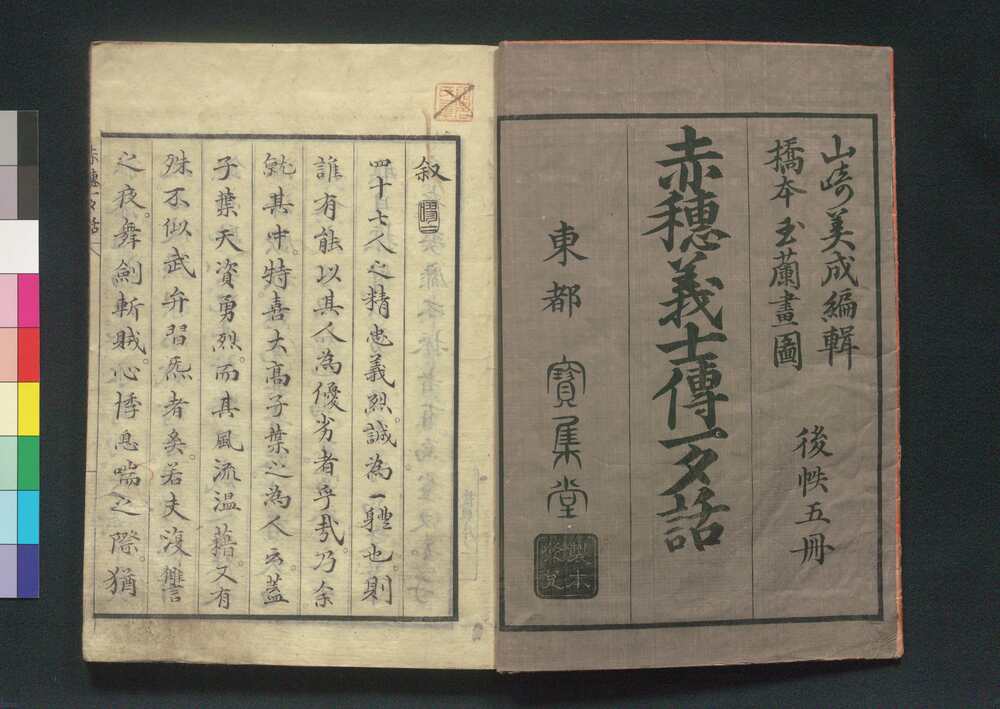 山崎美成編輯
橋本玉蘭畫圖
後帙五冊
赤穗義士傳一夕話
東都 寶集堂
製本
叙
四十七人之精忠義烈。誠為一軆也。則
誰有能以其人為優劣者乎哉。乃余
就其中。特喜大高子葉之為人云。蓋
子葉天資勇烈。而其風流温藉。又有
殊不似武弁習炁者矣。若夫復讐
之夜。舞劍斬賊。心悸息喘之際。猶
赤穗一夕話